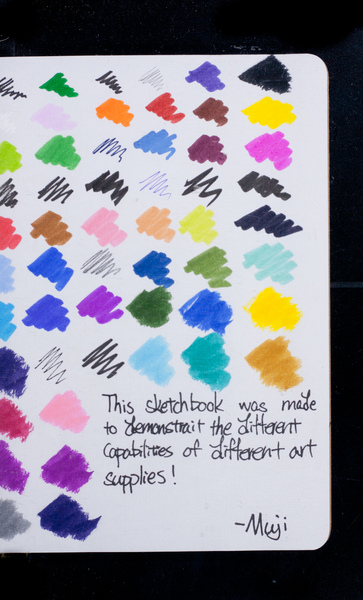 This sketchbook was made
to demonstrait the different
capabilities of different art
supplies!
-Muji